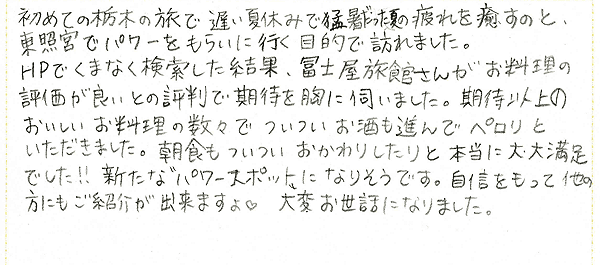 初めての栃木の旅で遅い夏休みで猛暑だった夏の疲れを癒すのと、
東照宮でパワーをもらいに行く目的で訪れました。
HPでくまなく検索した結果、冨士屋旅館さんがお料理の
評価が良いとの評判で期待を胸に伺いました。期待以上の
おいしいお料理の数々でついついお酒も進んでペロリと
いただきました。朝食もついついおかわりしたりと本当に大大満足
でした!!新たな“パワースポット„になりそうです。自信をもって他の
方にもご紹介が出来ますよ♡ 大変お世話になりました。